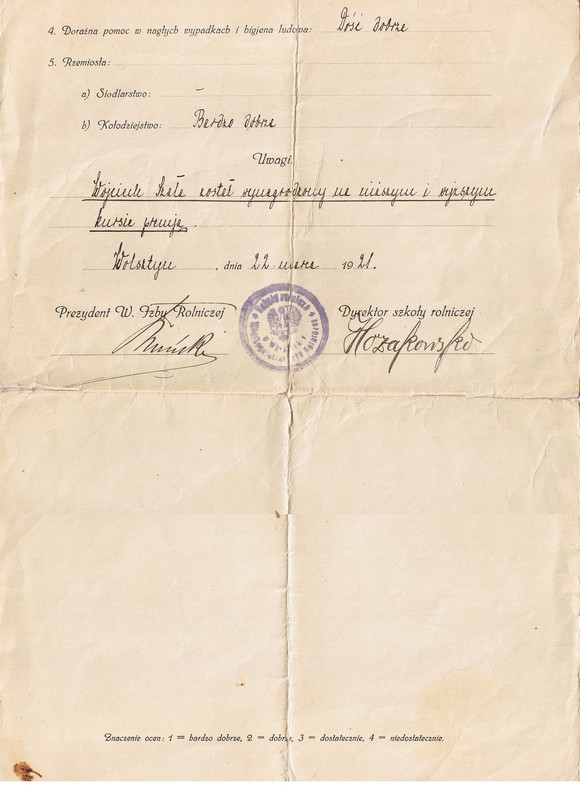 4. Doraźna pomoc w nagłych wypadkach i higjena ludowa: Dość dobrze
5. Rzemiosła:
a) Siodlarstwo: –
b) Kołodziejstwo: Bardzo dobrze
Uwagi.
Wojciech Szała został wynagrodzony na niższym i wyższym
kursie premją.
Wolsztyn, dnia 22 marca 1921.
Prezydent W. Izby Rolniczej
Dyrektor szkoły rolniczej
Znaczenie ocen: 1 = bardzo dobrze, 2 = dobrze, 3 = dostatecznie, 4 = niedostatecznie.